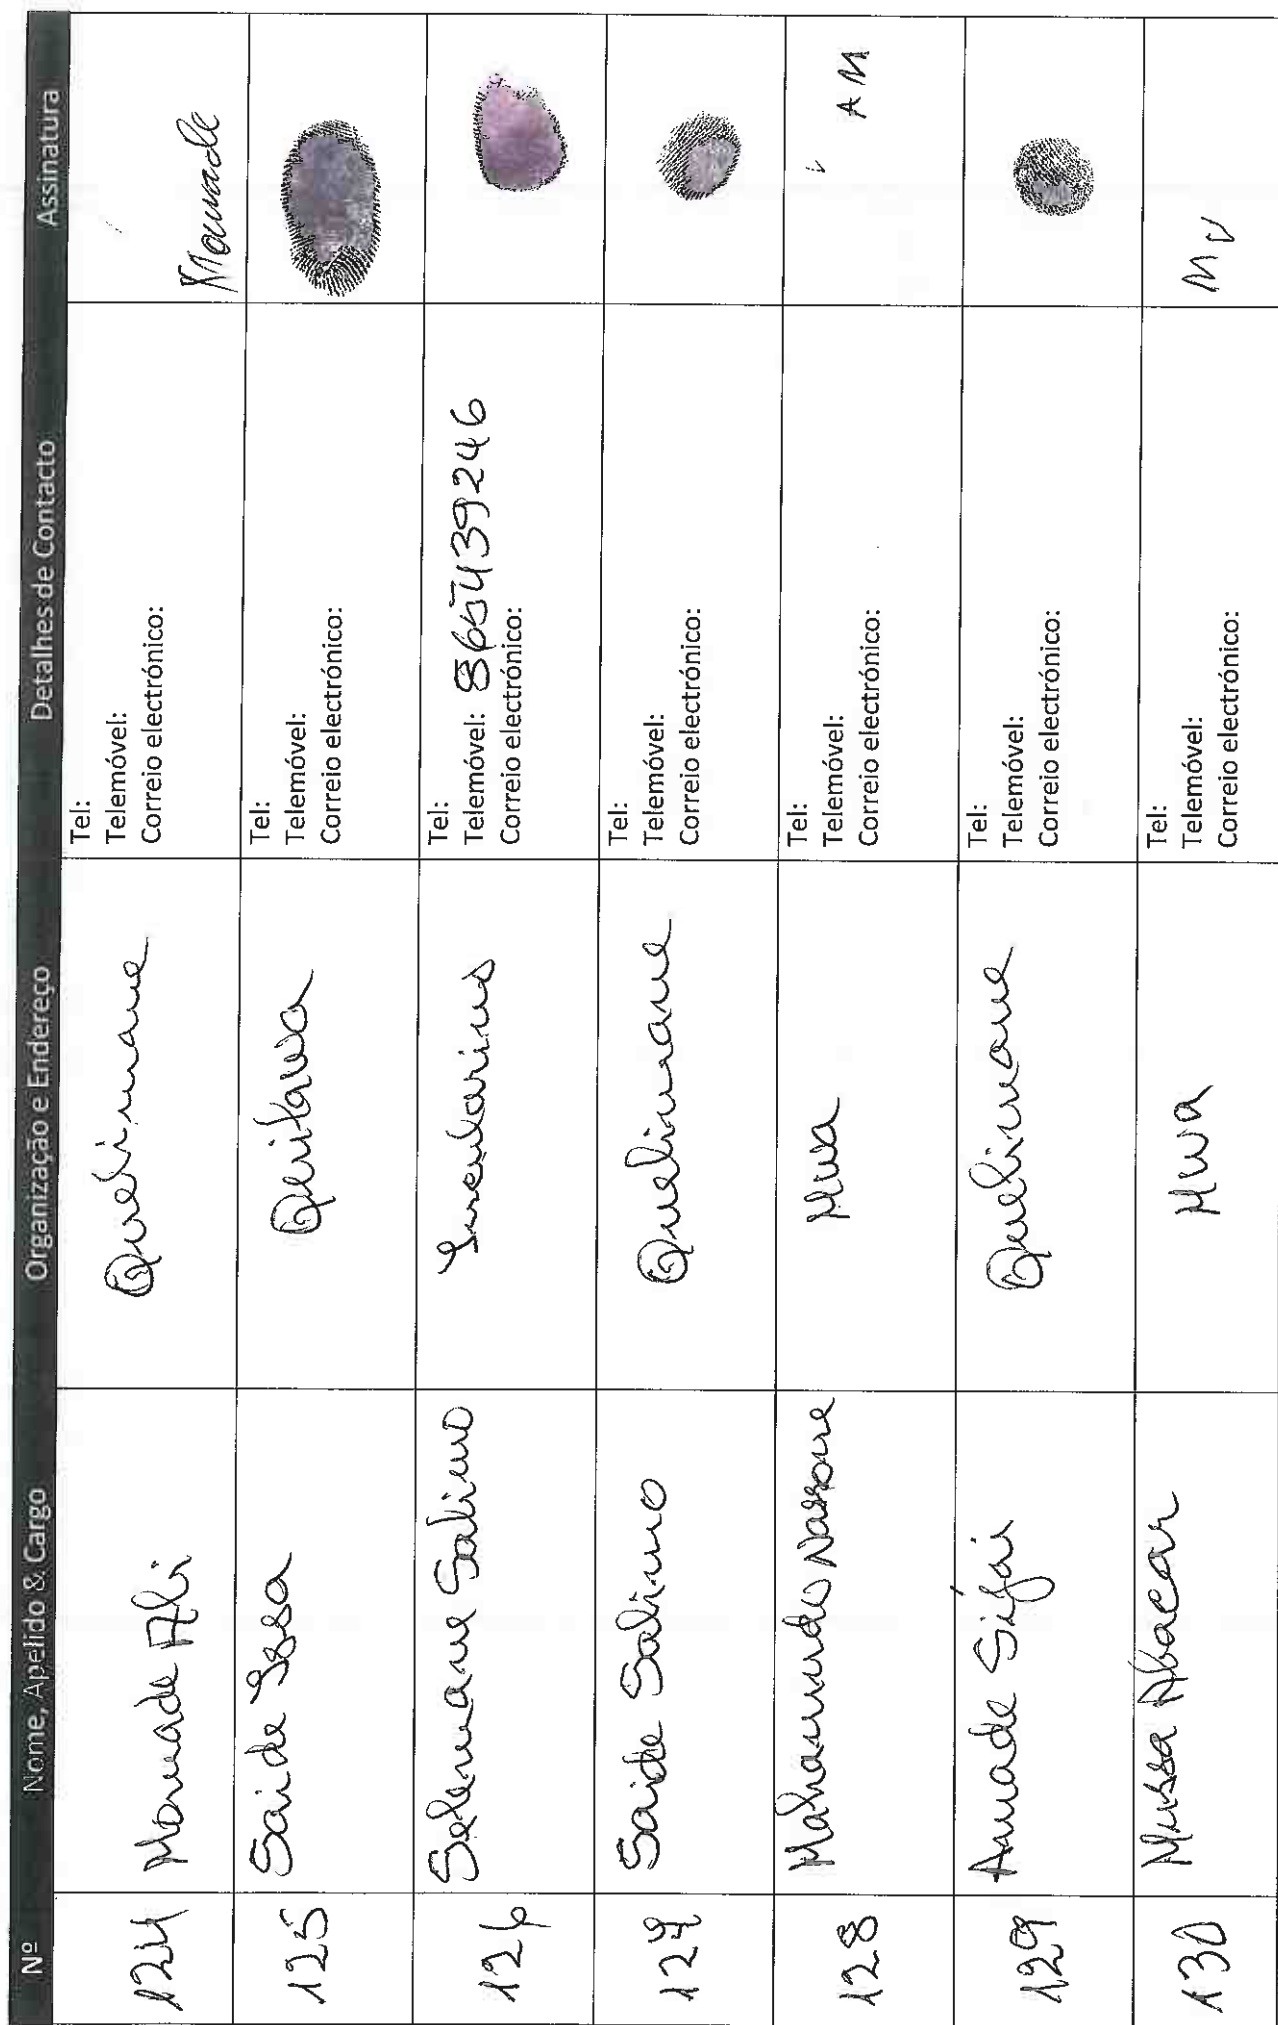 Nº Nome, Apelido & Cargo Organização e Endereço Detalhes de Contacto Assinatura
124 Momade Ali Quelimane Tel:
Telemóvel:
Correio electrónico:
Momade
125 Saide Issa Quitawa Tel:
Telemóvel:
Correio electrónico:
126 Selemane Salimo Tel:
Telemóvel: 865439246
Correio electrónico:
127 Saide Salimo Quelimane Tel:
Telemóvel:
Correio electrónico:
128 Mahamudo Nassone Mwa Tel:
Telemóvel:
Correio electrónico:
AM
129 Amade Sifai Quelimane Tel:
Telemóvel:
Correio electrónico:
130 Mussa Abacar Mwa Tel:
Telemóvel:
Correio electrónico: